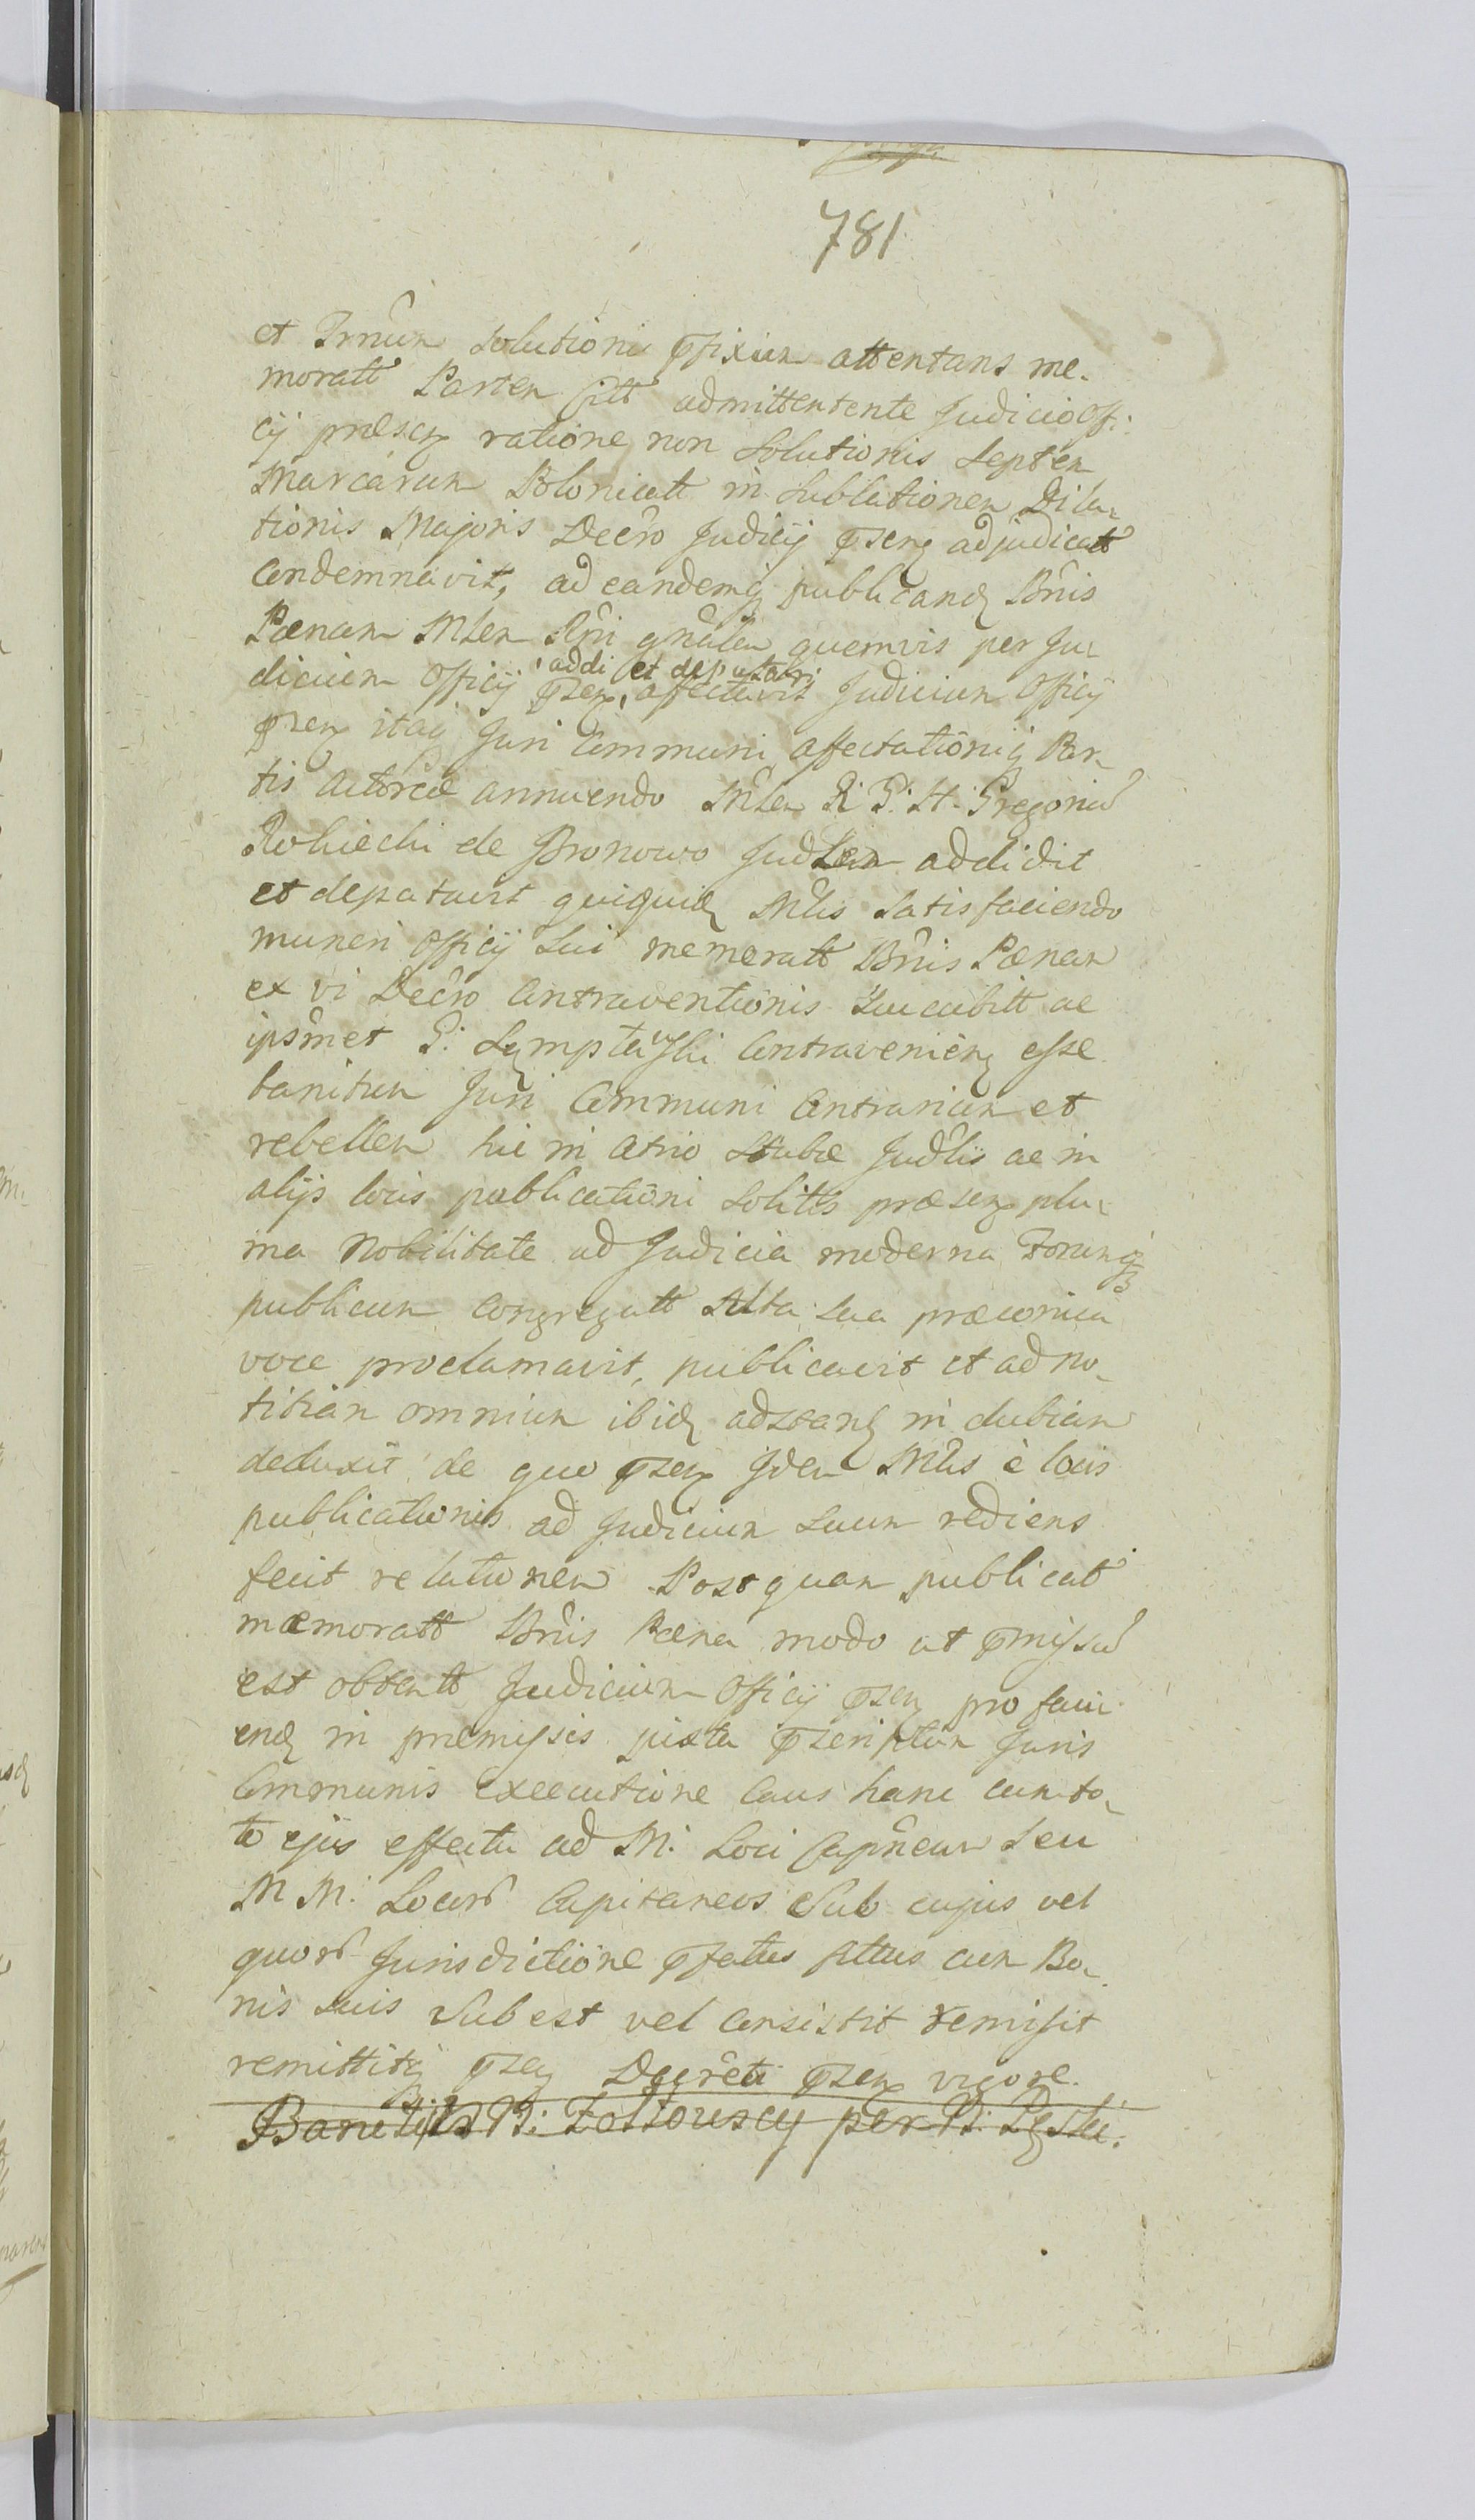 781
et Trnum solutioni pfixum attentans me-
moratt Partem Citt admittentente Judicio Offi:
cij præsen ratione non solutionis septem
Marcarum Polonicatt in sublationem Dila-
tionis Majoris Decro Judicij psens adjudicatt
Condemnavit, ad eandemq publicand Bnis
Pænam Mlem Rni gnalem quemvis per Ju-
dicium Officij psen, addi et deputari affectavit Judicium Officij
psen itaq Juri Communi Affectationiq Par-
tis Actoreæ annuendo Mlem R: P: H: Gregoriu
Rohiecki de Bronowo Judlem addidit
et deputavit quiquid Mlis satisfaciendo
muneri Officij sui memoratt Bnis Pænam
ex vi Decro Contraventionis succubitt ac
ipsmet P: Contravenien esse
banitum Juri Communi Contrarium et
rebellem hic in Atrio Stubæ Judlis ac in
alijs locis publicationi solitis præsen plu-
rima Nobilitate ad Judicia moderna Forumq
publicum Congregatt Alta sua præconica
voce proclamavit, publicavit et ad no-
titiam omnium ibid adstand in dubiam
deduxit de quo psen Idem Mlis è locis
publicationis ad Judicium suum rediens
fecit relationem Postquam publicat
mæmoratt Bnis Pæna modo ut pmissu
est obtentt Judicium Officij psen pro faci-
end in præmissis juxta pscriptum Juris
Communis executione Caus hanc cum to-
to ejus effectu ad M: Loci Capneum seu
M M: Locor Capitaneos Sub cujus vel
quor Jurisdictione pfatus Cittus cum Bo-
nis suis Subest vel Consistit remisit
remittitq psen Decreti psen vigore.